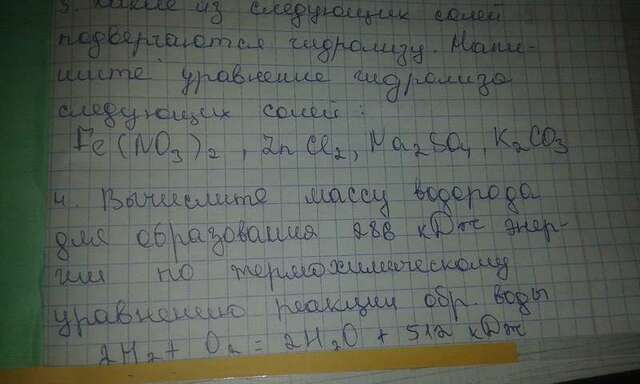 3. Какие из следующих солей
подвергаются гидролизу. Напи-
шите уравнение гидролиза
следующих солей:
Fe(NO3)2, ZnCl2, Na2SO4, K2CO3
4. Вычислите массу водорода
для образования 288 кДж энер-
гии по термохимическому
уравнению реакции обр. воды
2H2 + O2 = 2H2O + 512 кДж